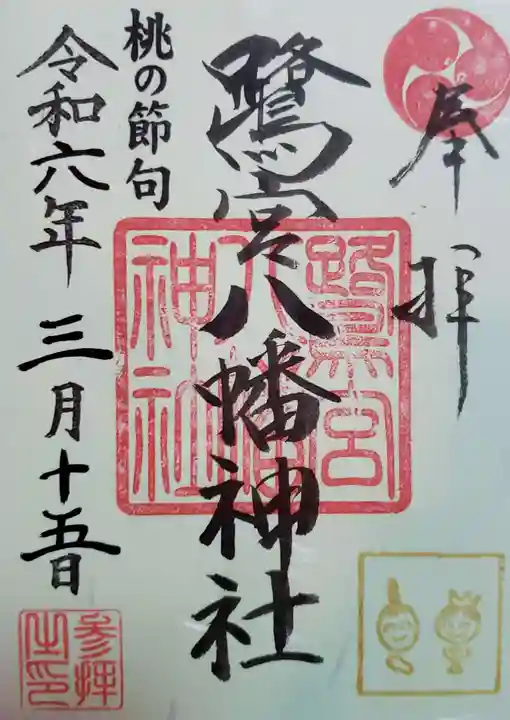 奉拝
鷺宮八幡神社
鷺宮
八幡
神社
桃の節句
令和六年三月十五日
参拝
之印